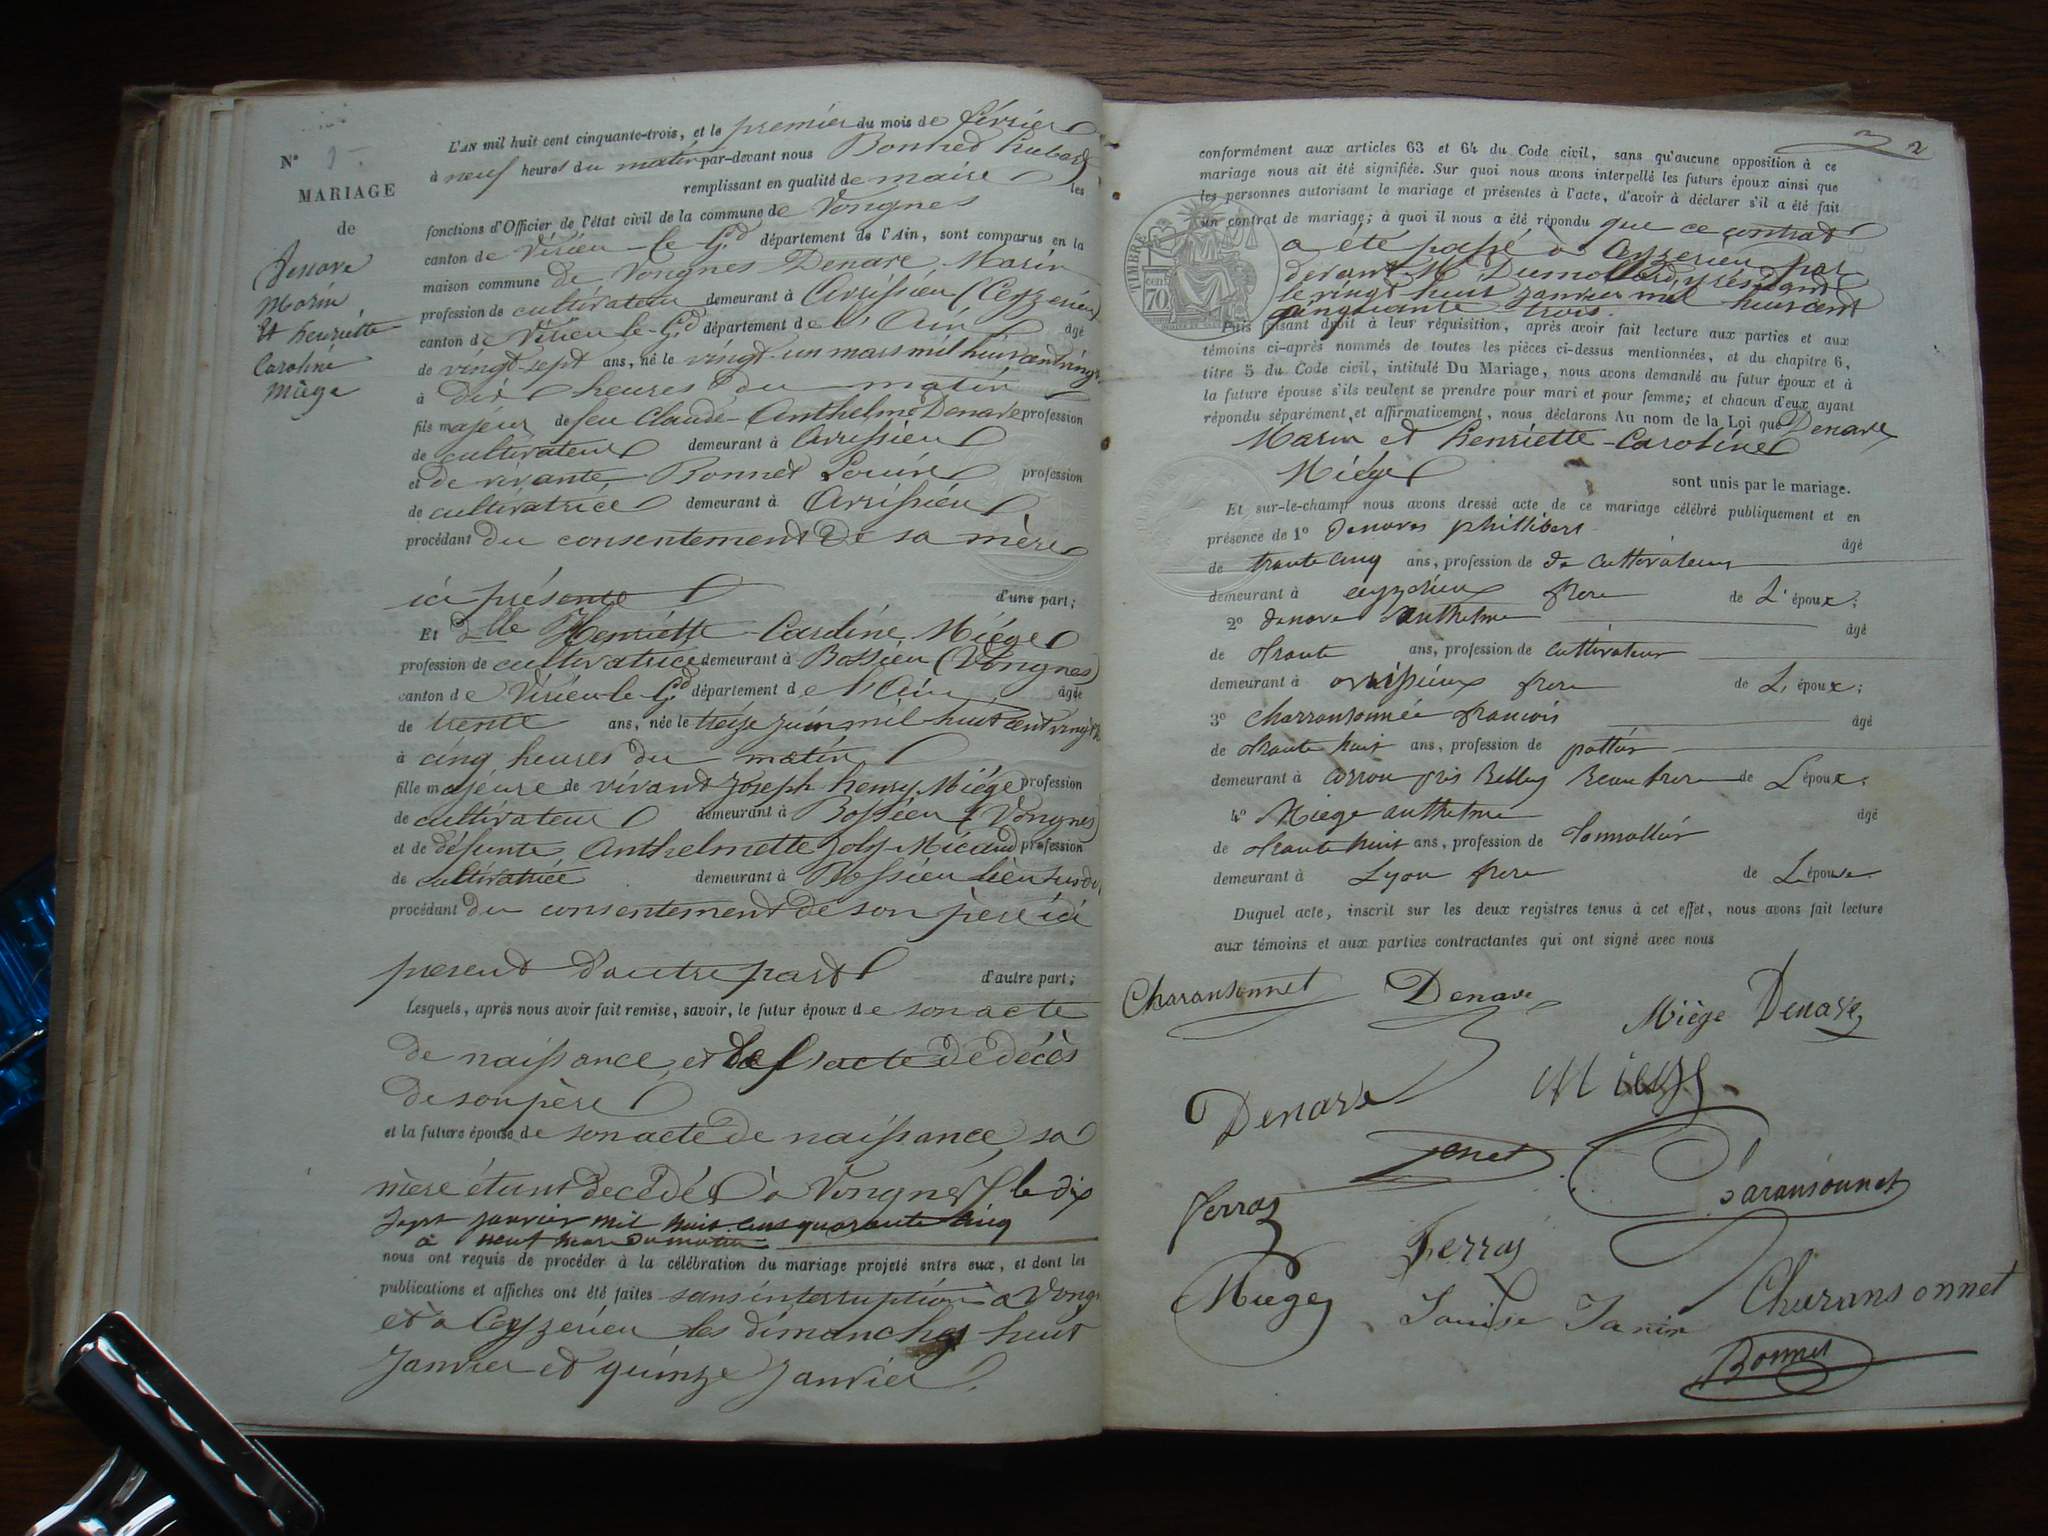 N°
MARIAGE
de
Denave
Marin
et henriette
Caroline
Miège
L'AN mil huit cent cinquante-trois, et le premier du mois de février
à neuf heures du matin par-devant nous Bonned
remplissant en qualité de maire les
fonctions d'Officier de l'état civil de la commune de Vongnes
canton de Virieu-le-Gd département de l'Ain, sont comparus en la
maison commune de Vongnes Denave Marin
profession de cultivateur demeurant à Avrissieu (Ceyzerieu)
canton de Virieu-le-Gd département de l'Ain âgé
de vingt-sept ans, né le vingt-un mars mil huit cent vingt
à dix heures du matin
fils majeur de feu Claude-Anthelme Denave profession
de cultivateur demeurant à Avrissieu
et de vivante Bonnet Louise profession
de cultivatrice demeurant à Avrissieu
procédant du consentement de sa mère
ici présente d'une part;
Et dlle Henriette-Caroline Miège
profession de cultivatrice demeurant à Bossieu (Vongnes)
canton de Virieu-le-Gd département de l'Ain âgée
de trente ans, née le treize juin mil huit cent vingt
à cinq heures du matin
fille majeure de vivant Joseph henry Miège profession
de cultivateur demeurant à Bossieu (Vongnes)
et de défunte Anthelmette Joly-Micaud profession
de cultivatrice demeurant à Bossieu lieu susdi
procédant du consentement de son père ici
présent d'autre part d'autre part;
Lesquels, après nous avoir fait remise, savoir, le futur époux de son acte
de naissance, et de l'acte de décès
de son père
et la future épouse de son acte de naissance, sa
mère étant decédée à Vongnes le dix
sept janvier mil huit cent quarante cinq
à neuf heure du matin
nous ont requis de procéder à la célébration du mariage projeté entre eux, et dont les
publications et affiches ont été faites sans interruption à Vong
et à Ceyzérieu les dimanches huit
Janvier et quinze Janvier.
2
conformément aux articles 63 et 64 du Code civil, sans qu'aucune opposition à ce
mariage nous ait été signifiée. Sur quoi nous avons interpellé les futurs époux ainsi que
les personnes autorisant le mariage et présentes à l'acte, d'avoir à déclarer s'il a été fait
un contrat de mariage; à quoi il nous a été répondu que ce contrat
a été passé à Ceyzerieu par
devant Me Dumollard, y résidant
le vingt huit janvier mil huit cent
cinquante trois.
TIMBRE
70 cent
Puis faisant droit à leur réquisition, après avoir fait lecture aux parties et aux
témoins ci-après nommés de toutes les pièces ci-dessus mentionnées, et du chapitre 6,
titre 5 du Code civil, intitulé Du Mariage, nous avons demandé au futur époux et à
la future épouse s'ils veulent se prendre pour mari et pour femme; et chacun d'eux ayant
répondu séparément et affirmativement, nous déclarons Au nom de la Loi que Denave
Marin et Henriette-Caroline
Miège
sont unis par le mariage.
Et sur-le-champ nous avons dressé acte de ce mariage célébré publiquement et en
présence de 1° denaves phillibert âgé
de trante cinq ans, profession de de cultivateur
demeurant à ceyzerieux frere de L' époux;
2° denave anthelme âgé
de trante ans, profession de cultivateur
demeurant à avrissieux frere de L' époux;
3° charransonnée francois âgé
de trante huit ans, profession de
demeurant à Belley Beau frere de L'époux;
4° Miege anthelme âgé
de trante huit ans, profession de
demeurant à Lyon frere de L'épouse.
Duquel acte, inscrit sur les deux registres tenus à cet effet, nous avons fait lecture
aux témoins et aux parties contractantes qui ont signé avec nous
Charansonnet Denave
Miège Denave
Denave Miege
Charansonnet
Ferraz
Ferraz
Miege Louise Janin Charansonnet
Bonnet